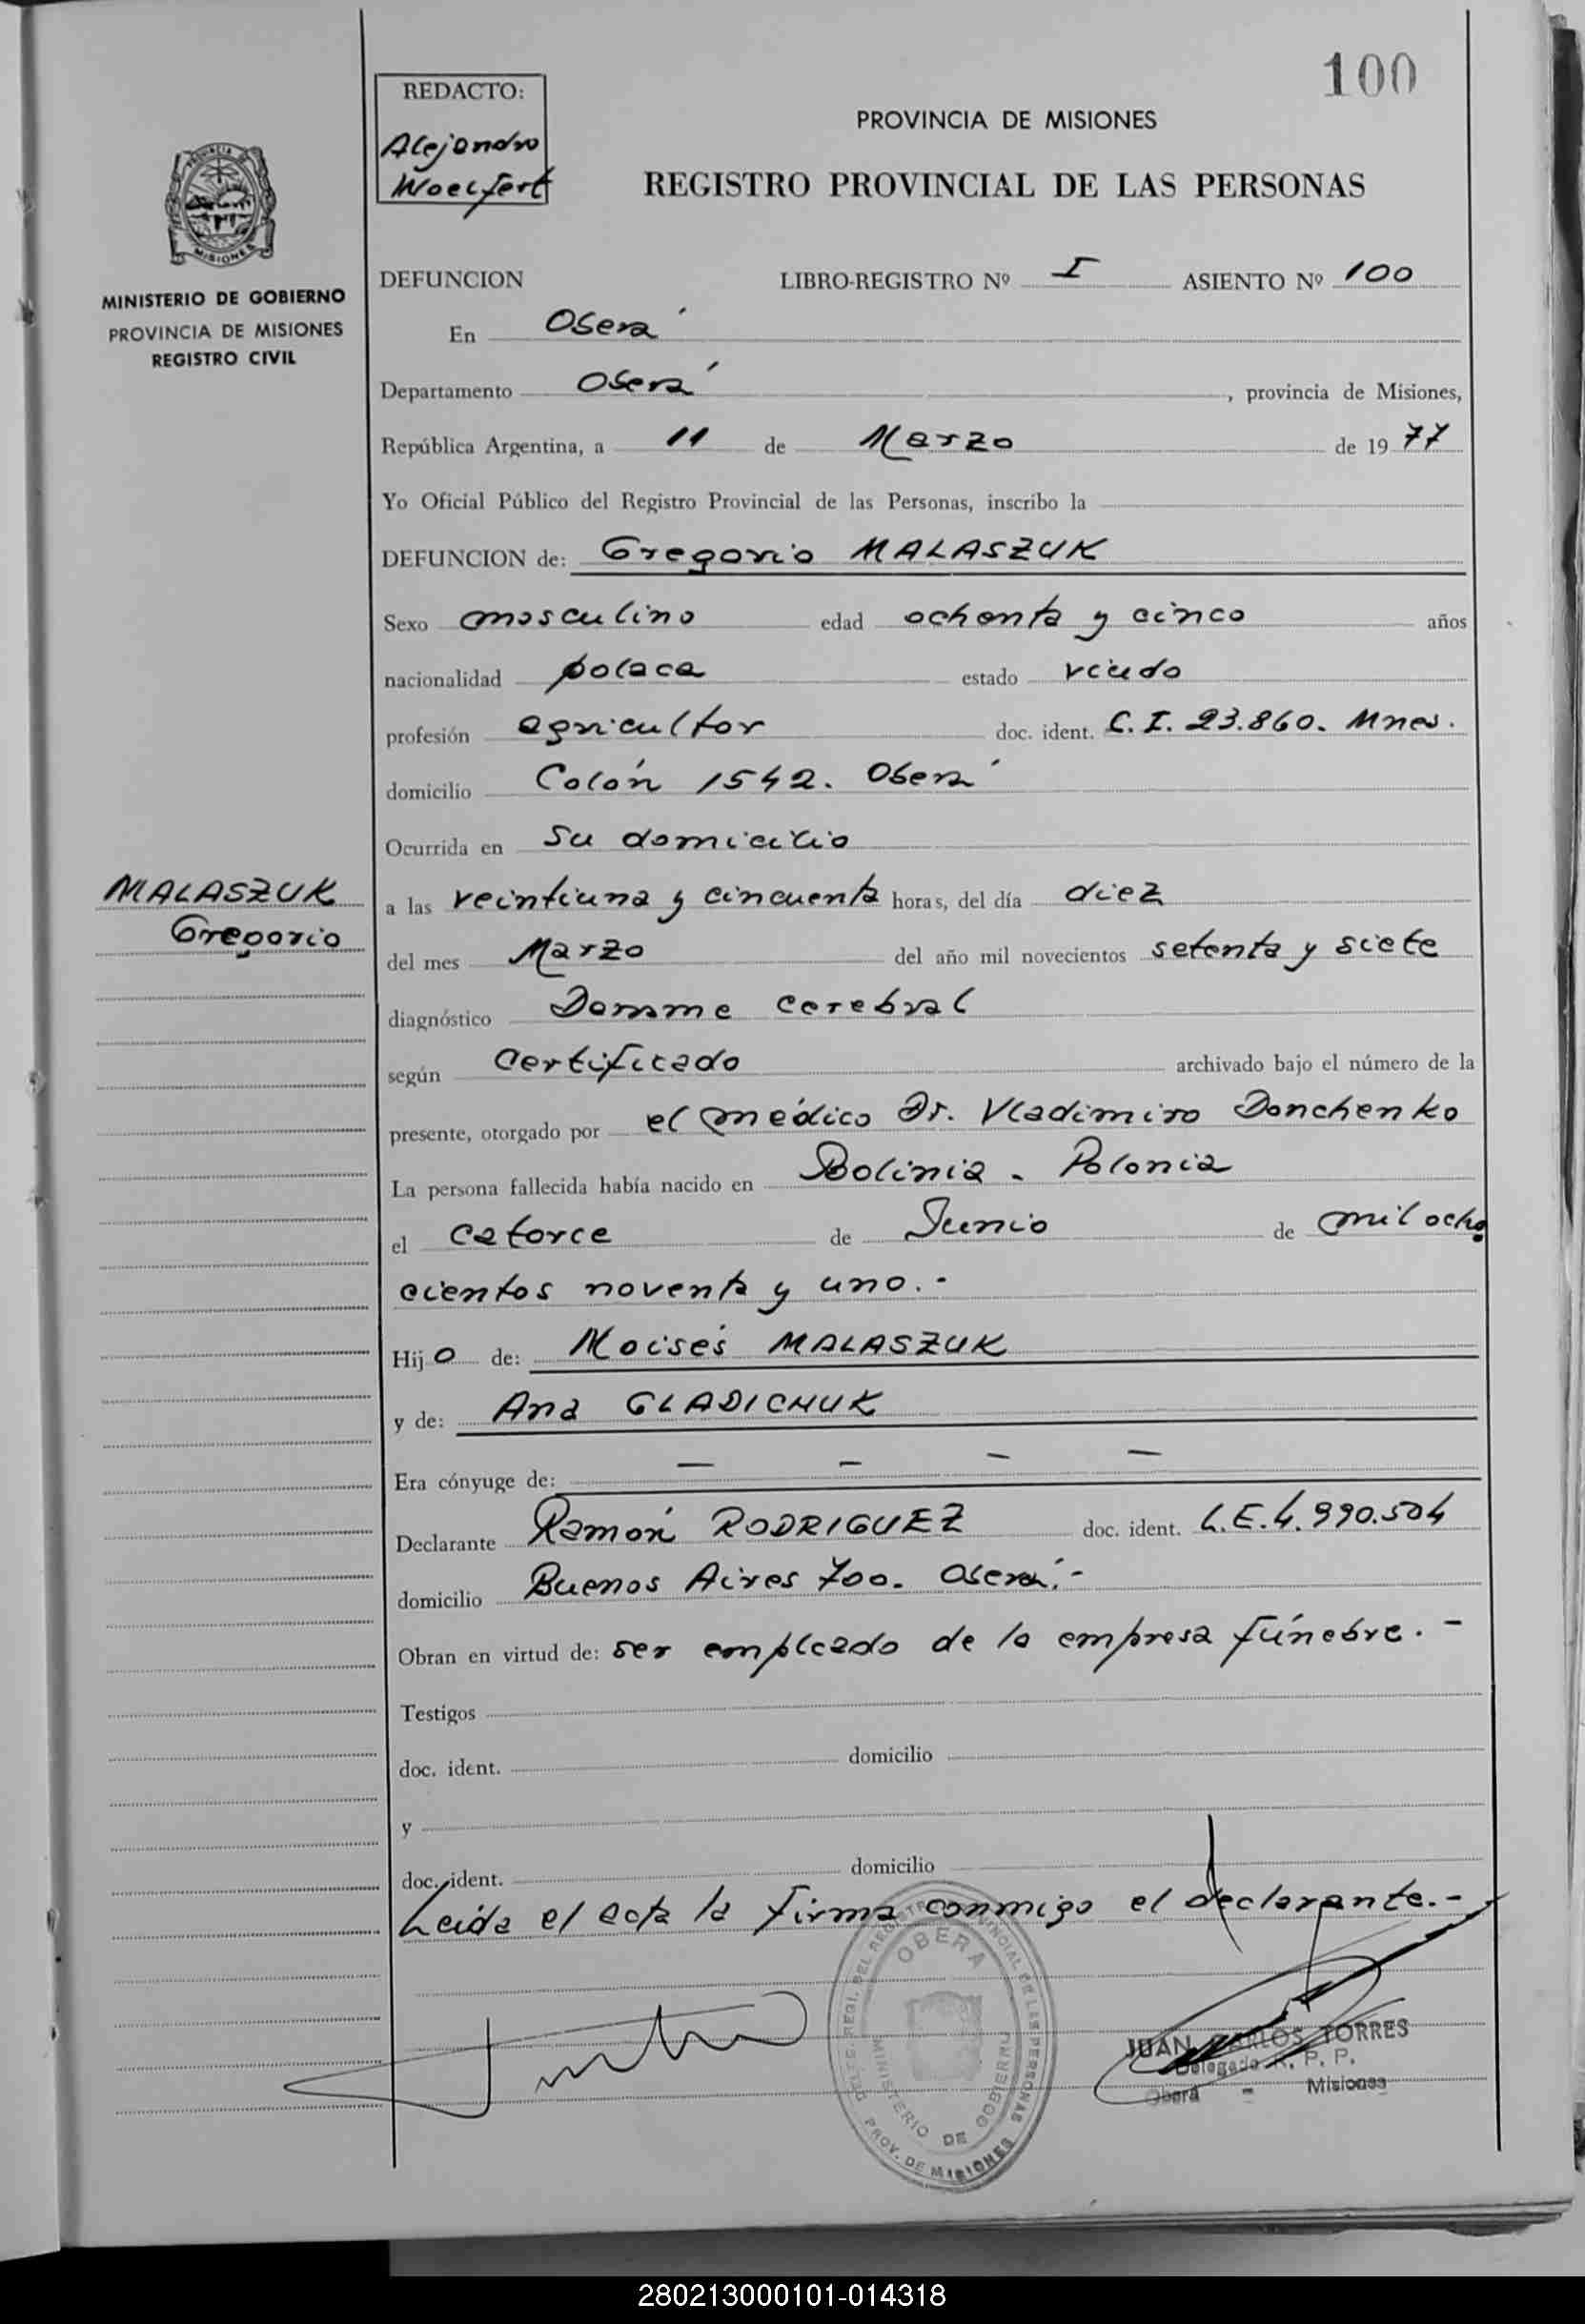 100
REDACTO:
Alejandro
Woelfert
PROVINCIA DE MISIONES
REGISTRO PROVINCIAL DE LAS PERSONAS
PROVINCIA DE
MISIONES
MINISTERIO DE GOBIERNO
PROVINCIA DE MISIONES
REGISTRO CIVIL
DEFUNCION LIBRO-REGISTRO Nº I ASIENTO Nº 100
En Oberá
Departamento Oberá, provincia de Misiones,
República Argentina, a 11 de Marzo de 1977
Yo Oficial Público del Registro Provincial de las Personas, inscribo la
DEFUNCION de: Gregorio MALASZUK
Sexo masculino edad ochenta y cinco años
nacionalidad polaca estado viudo
profesión agricultor doc. ident. C.I. 23.860. Mnes.
domicilio Colón 1542. Oberá
Ocurrida en su domicilio
MALASZUK
Gregorio
a las veintiuna y cincuenta horas, del día diez
del mes Marzo del año mil novecientos setenta y siete
diagnóstico cerebral
según certificado archivado bajo el número de la
presente, otorgado por el médico Dr. Vladimiro Donchenko
La persona fallecida había nacido en Bolinia - Polonia
el catorce de Junio de mil ocho
cientos noventa y uno.-
Hijo de: Moisés MALASZUK
y de: Ana GLADICHUK
Era cónyuge de: — — — —
Declarante Ramón RODRIGUEZ doc. ident. L.E. 4.990.504
domicilio Buenos Aires 700. Oberá.-
Obran en virtud de: ser empleado de la empresa fúnebre.-
Testigos
doc. ident. domicilio
y
doc. ident. domicilio
Leída el acta la firma conmigo el declarante.-
OBERA
MINISTERIO DE GOBIERNO
PROV. DE MISIONES
JUAN CARLOS TORRES
Delegado R. P. P.
Oberá - Misiones
280213000101-014318